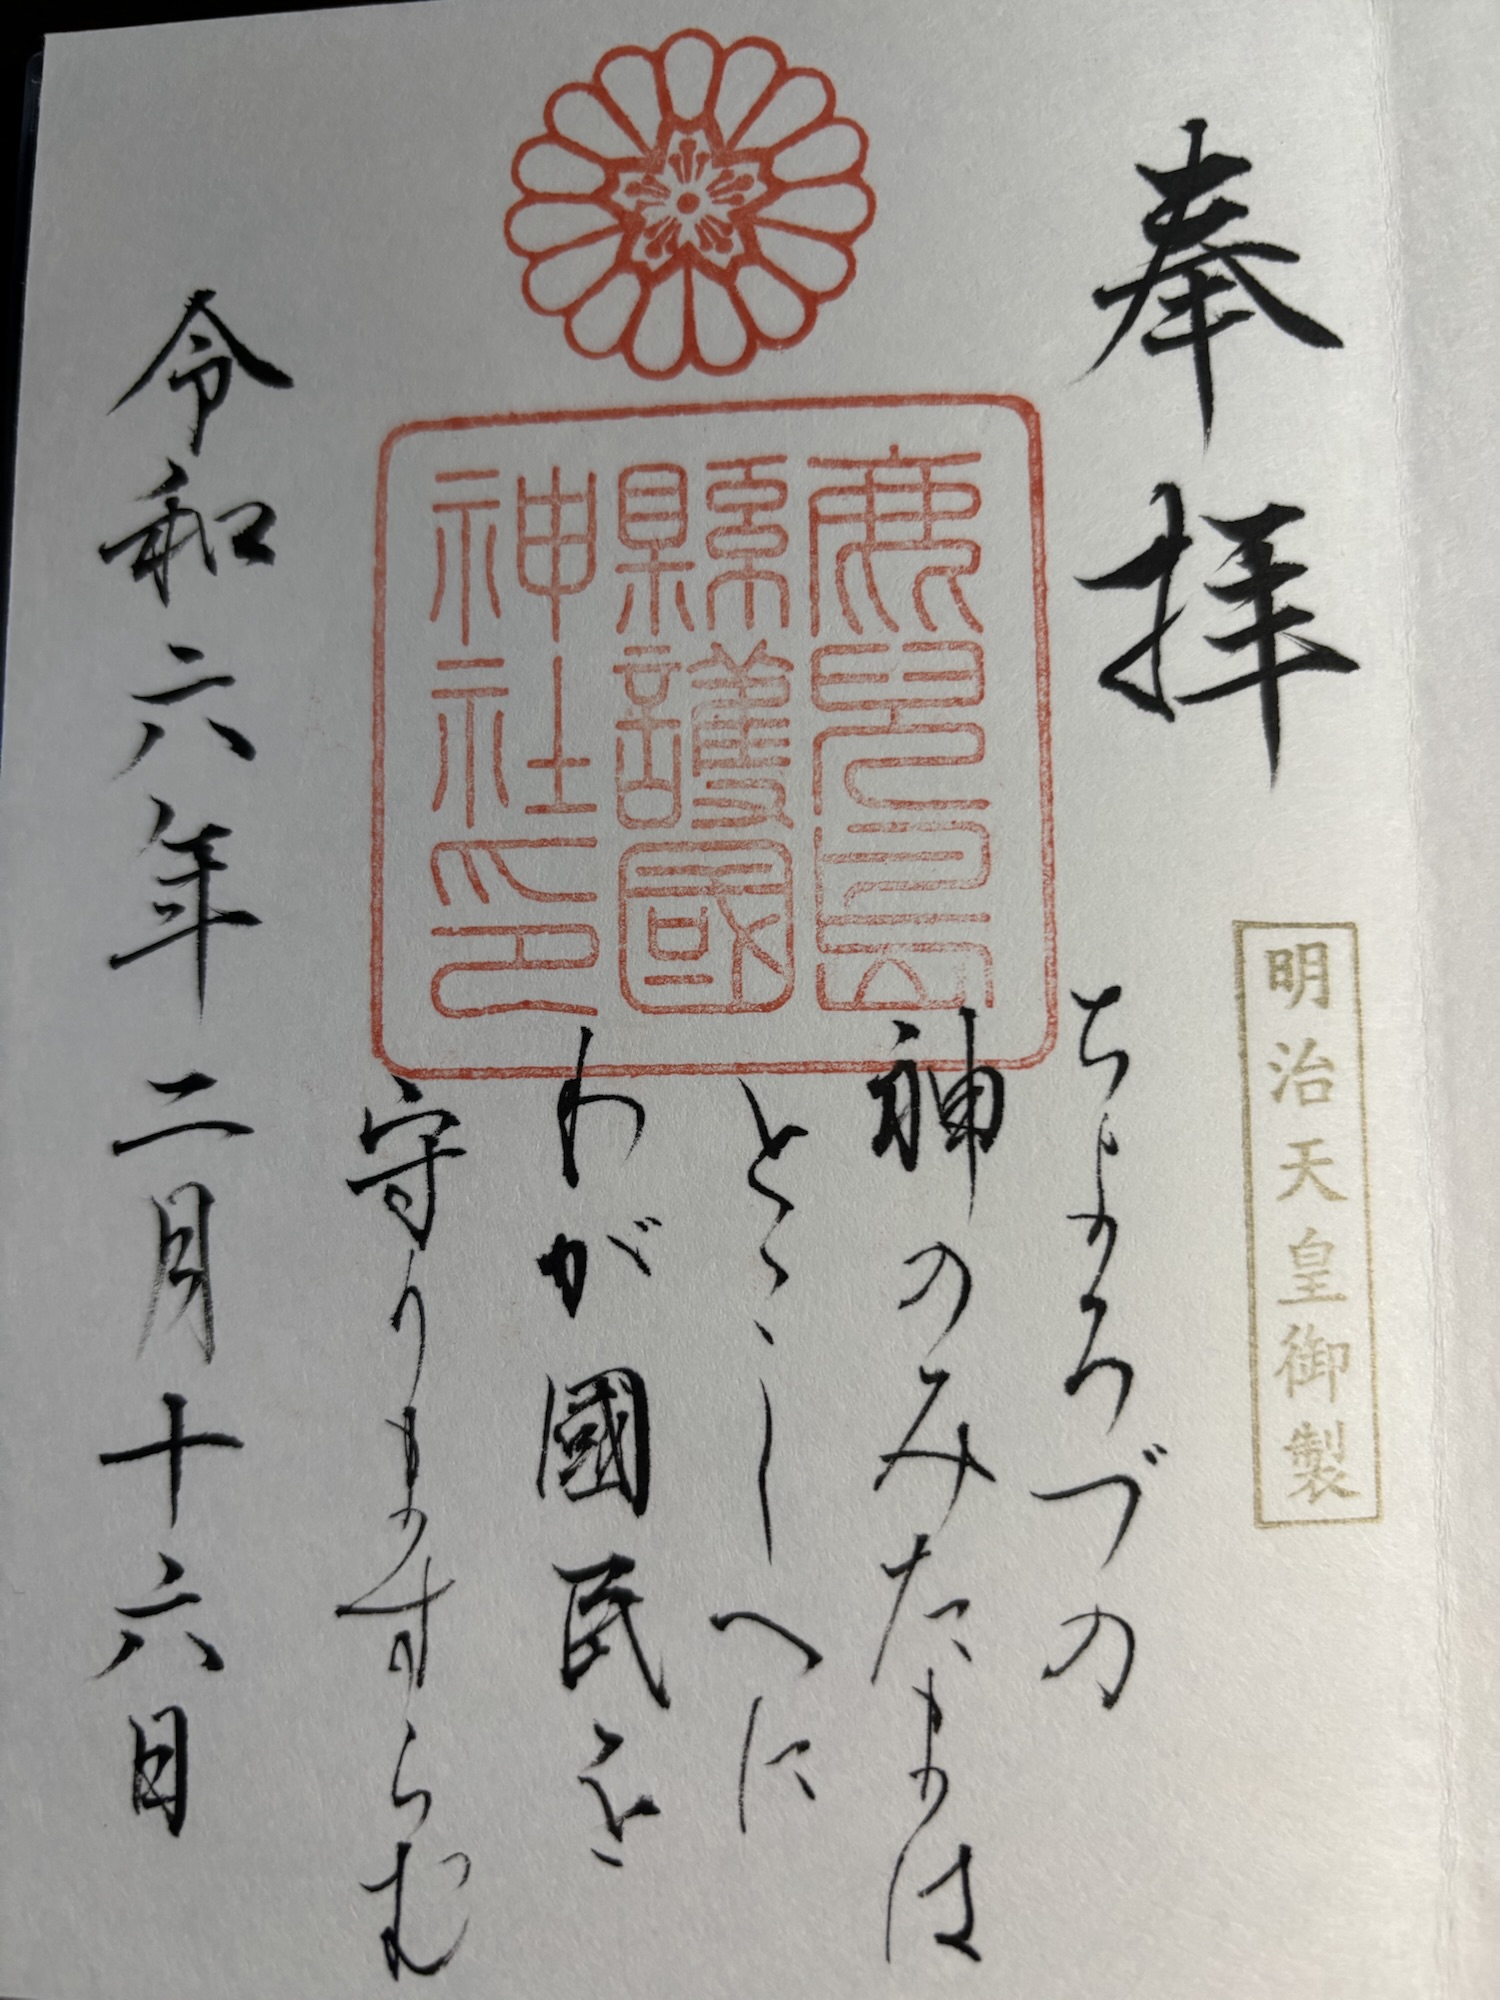 奉拝
明治天皇御製
ちよろづの
神のみたまは
とこしへに
わが國民を
守りますらむ
鹿兒島
縣護國
神社印
令和六年二月十六日